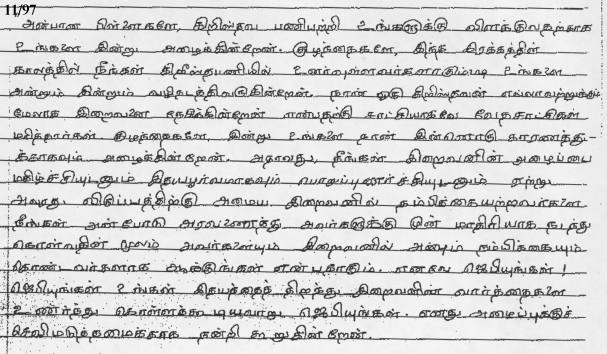 11/97
அன்பான பிள்ளைகளே, கிறிஸ்தவ பணிபற்றி உங்களுக்கு விளக்குவதற்காக
உங்களை இன்று அழைக்கின்றேன். குழந்தைகளே, இந்த இரக்கத்தின்
காலத்தில் நீங்கள் கிறிஸ்தபணியில் உணர்வுள்ளவர்களாகும்படி உங்களை
அன்றும் இன்றும் வழிநடத்திவருகின்றேன். நான் ஒரு கிறிஸ்தவன் எல்லாவற்றுக்கும்
மேலாக இறைவனை நேசிக்கின்றேன் என்பதற்கு சாட்சியாகவே வேதசாட்சிகள்
மரித்தார்கள். குழந்தைகளே, இன்று உங்களை நான் இன்னொரு காரணத்து-
க்காகவும் அழைக்கின்றேன். அதாவது, நீங்கள் இறைவனின் அழைப்பை
மகிழ்ச்சியுடனும் இதயபூர்வமாகவும் பொறுப்புணர்ச்சியுடனும் ஏற்று
அவரது விடுப்பத்திற்கு அமைய இறைவனில் நம்பிக்கையற்றவர்களை
நீங்கள் அன்போடு அரவணைத்து அவர்களுக்கு முன் மாதிரியாக நடந்து
கொள்வதின் மூலம் அவர்களையும் இறைவனில் அன்பும் நம்பிக்கையும்
கொண்டவர்களாக ஆக்குங்கள் என்பதாகும். எனவே ஜெபியுங்கள்!
ஜெபியுங்கள் உங்கள் இதயத்தைத் திறந்து இறைவனின் வார்த்தைகளை
உணர்ந்து கொள்ளக்கூடியவாறு ஜெபியுங்கள். எனது அழைப்புக்குச்
செவிமடுத்தமைக்காக நன்றி கூறுகின்றேன்.